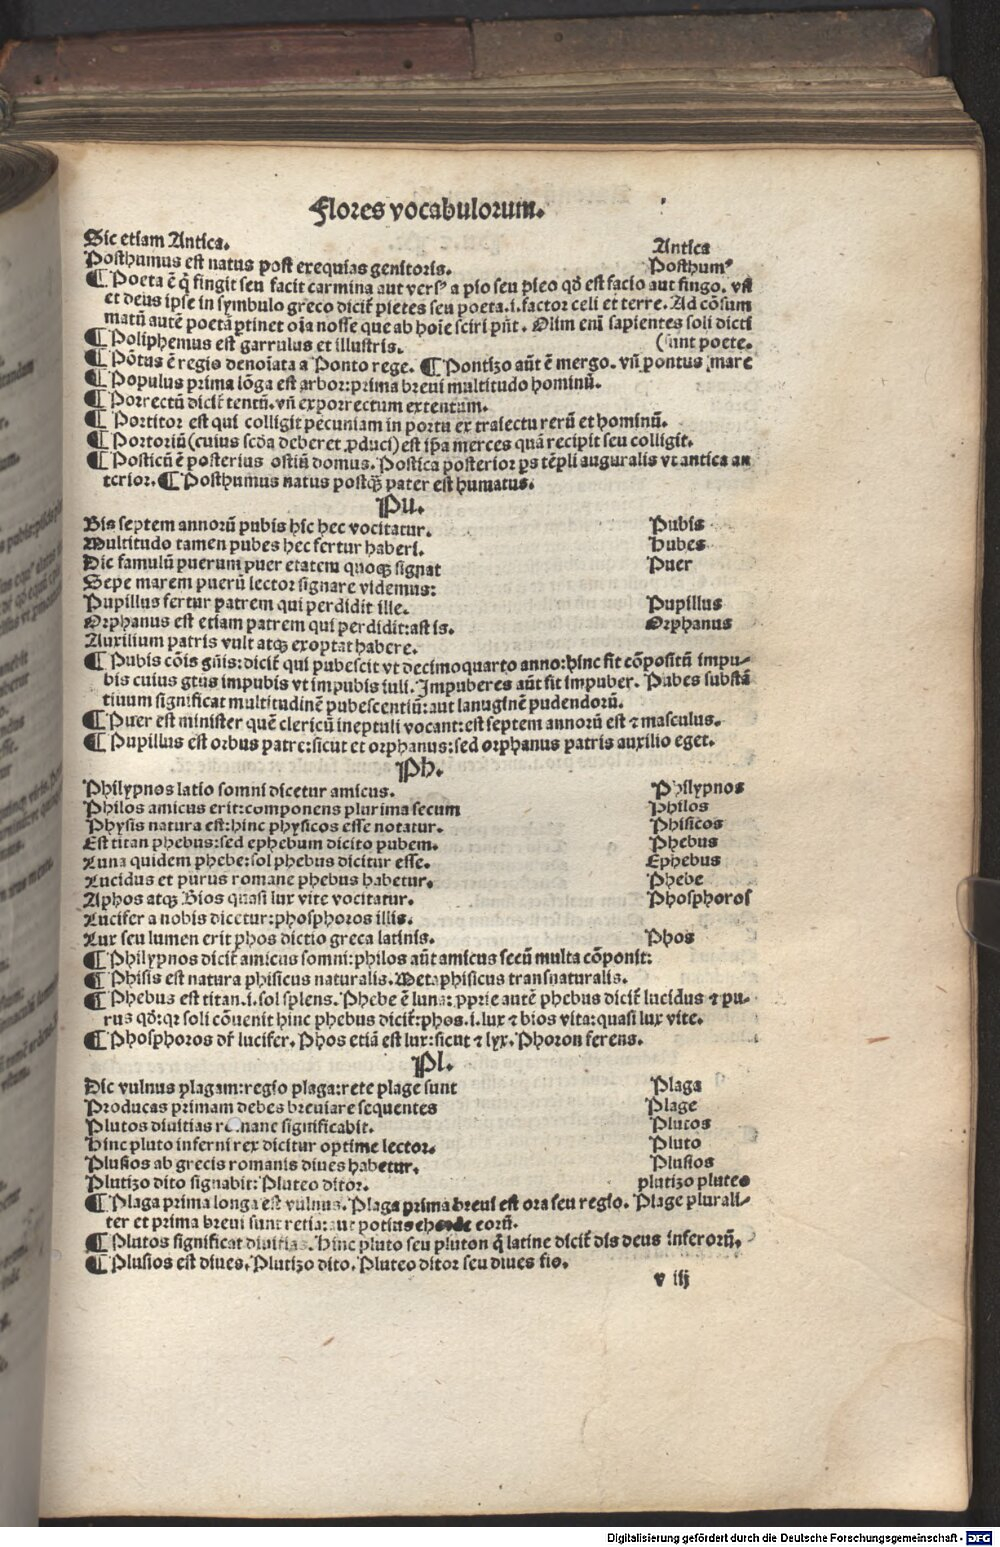 Flores vocabulorum.
Sic etiam Antica. Antica
Posthumus est natus post exequias genitoris. Posthumꝰ
¶ Poeta ē q̄ fingit seu facit carmina aut versꝰ a pio seu pieo qd̓ est facio aut fingo. vñ
et deus ipse in symbulo greco dicit᷑ pietes seu poeta .i. factor celi et terre. Ad cōsum
matū autē poetā ꝑtinet oīa nosse que ab hoīe sciri pn̄t. Olim enī sapientes soli dicti
¶ Poliphemus est garrulus et illustris. (sunt poete.
¶ Pōtus ē regio denoīata a Ponto rege. ¶ Pontizo aūt ē mergo. vn̄ pontus mare
¶ Populus prima lōga est arbor: prima brevi multitudo hominū.
¶ Porrectū dicit᷑ tentū. vn̄ exporrectum extentum.
¶ Portitor est qui colligit pecuniam in portu ex traiectu rerū et hominū.
¶ Portoriū (cuius scd̓a deberet ꝓduci) est ip̄a merces quā recipit seu colligit.
¶ Posticū ē posterius ostiū domus. Postica posterior ps tēpli auguralis vt antica an
terior. ¶ Posthumus natus postqꝫ pater est humatus.
Pu.
Bis septem annorū pubis hic hec vocitatur. Pubis
Multitudo tamen pubes hec fertur haberi. Pubes
Dic famulū puerum puer etatem quoqꝫ signat Puer
Sepe marem puerū lector signare videmus:
Pupillus fertur patrem qui perdidit ille. Pupillus
Orphanus est etiam patrem qui perdidit: ast is. Orphanus
Auxilium patris vult atqꝫ exoptat habere.
¶ Pubis cōis gn̄is: dicit᷑ qui pubescit vt decimoquarto anno: hinc fit cōpositū impu-
bis cuius gtus impubis vt impubis iuli. Impuberes aūt fit impuber. Pubes substā
tiuum significat multitudinē pubescentiū: aut lanuginē pudendorū.
¶ Puer est minister quē clericū ineptuli vocant: est septem annorū est ⁊ masculus.
¶ Pupillus est orbus patre: sicut et orphanus: sed orphanus patris auxilio eget.
Ph.
Philypnos latio somni dicetur amicus. Philypnos
Philos amicus erit: componens plurima secum Philos
Physis natura est: hinc physicos esse notatur. Phisicos
Est titan phebus: sed ephebum dicito pubem. Phebus
Luna quidem phebe: sol phebus dicitur esse. Ephebus
Lucidus et purus romane phebus habetur. Phebe
A phos atqꝫ Bios quasi lux vite vocitatur. Phosphoros
Lucifer a nobis dicetur: phosphoros illis.
Lux seu lumen erit phos dictio greca latinis. Phos
¶ Philypnos dicit᷑ amicus somni: philos aūt amicus secū multa cōponit:
¶ Phisis est natura phisicus naturalis. Metaphisicus transnaturalis.
¶ Phebus est titan .i. sol splens. Phebe ē luna: ꝓprie autē phebus dicit᷑ lucidus ⁊ pu-
rus qd̓: qꝛ soli cōuenit hinc phebus dicit᷑: phos .i. lux ⁊ bios vita: quasi lux vite.
¶ Phosphoros dr̄ lucifer. Phos etiā est lux: sicut ⁊ lyx. Phoron ferens.
Pl.
Dic vulnus plagam: regio plaga: rete plage sunt Plaga
Producas primam debes breviare sequentes Plage
Plutos diuitias romane significabit. Plutos
Hinc pluto inferni rex dicitur optime lector. Pluto
Plusios ab grecis romanis diues habetur. Plusios
Plutizo dito signabit: Pluteo ditor. plutizo pluteo
¶ Plaga prima longa est vulnus. Plaga prima breui est ora seu regio. Plage plurali-
ter et prima breui sunt retia: aut potius corū.
¶ Plutos significat diuitias. Hinc pluto seu pluton q̄ latine dicit᷑ dis deus inferorū.
¶ Plusios est diues. Plutizo dito. Pluteo ditor seu diues fio.
v iij
Digitalisierung gefördert durch die Deutsche Forschungsgemeinschaft - DFG